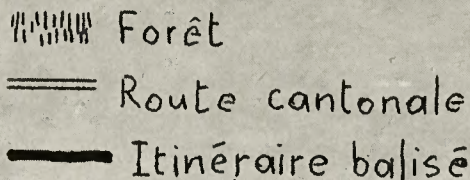 Forêt
Route cantonale
Itinéraire balisé